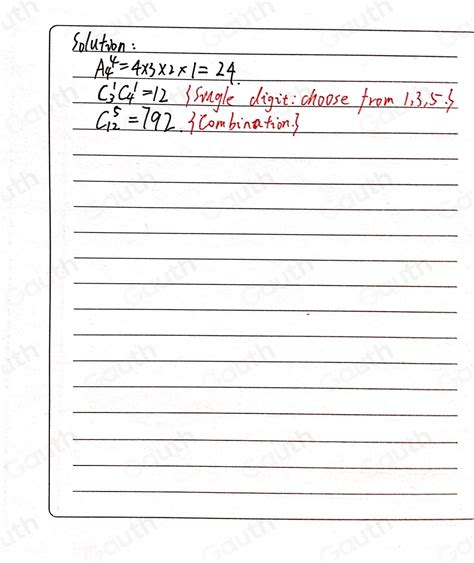 Solution:
A₄⁴=4×3×2×1=24
C₃¹C₄¹=12 {Single digit: choose from 1,3,5.}
C₁₂⁵=792. {Combination.}
Gauth